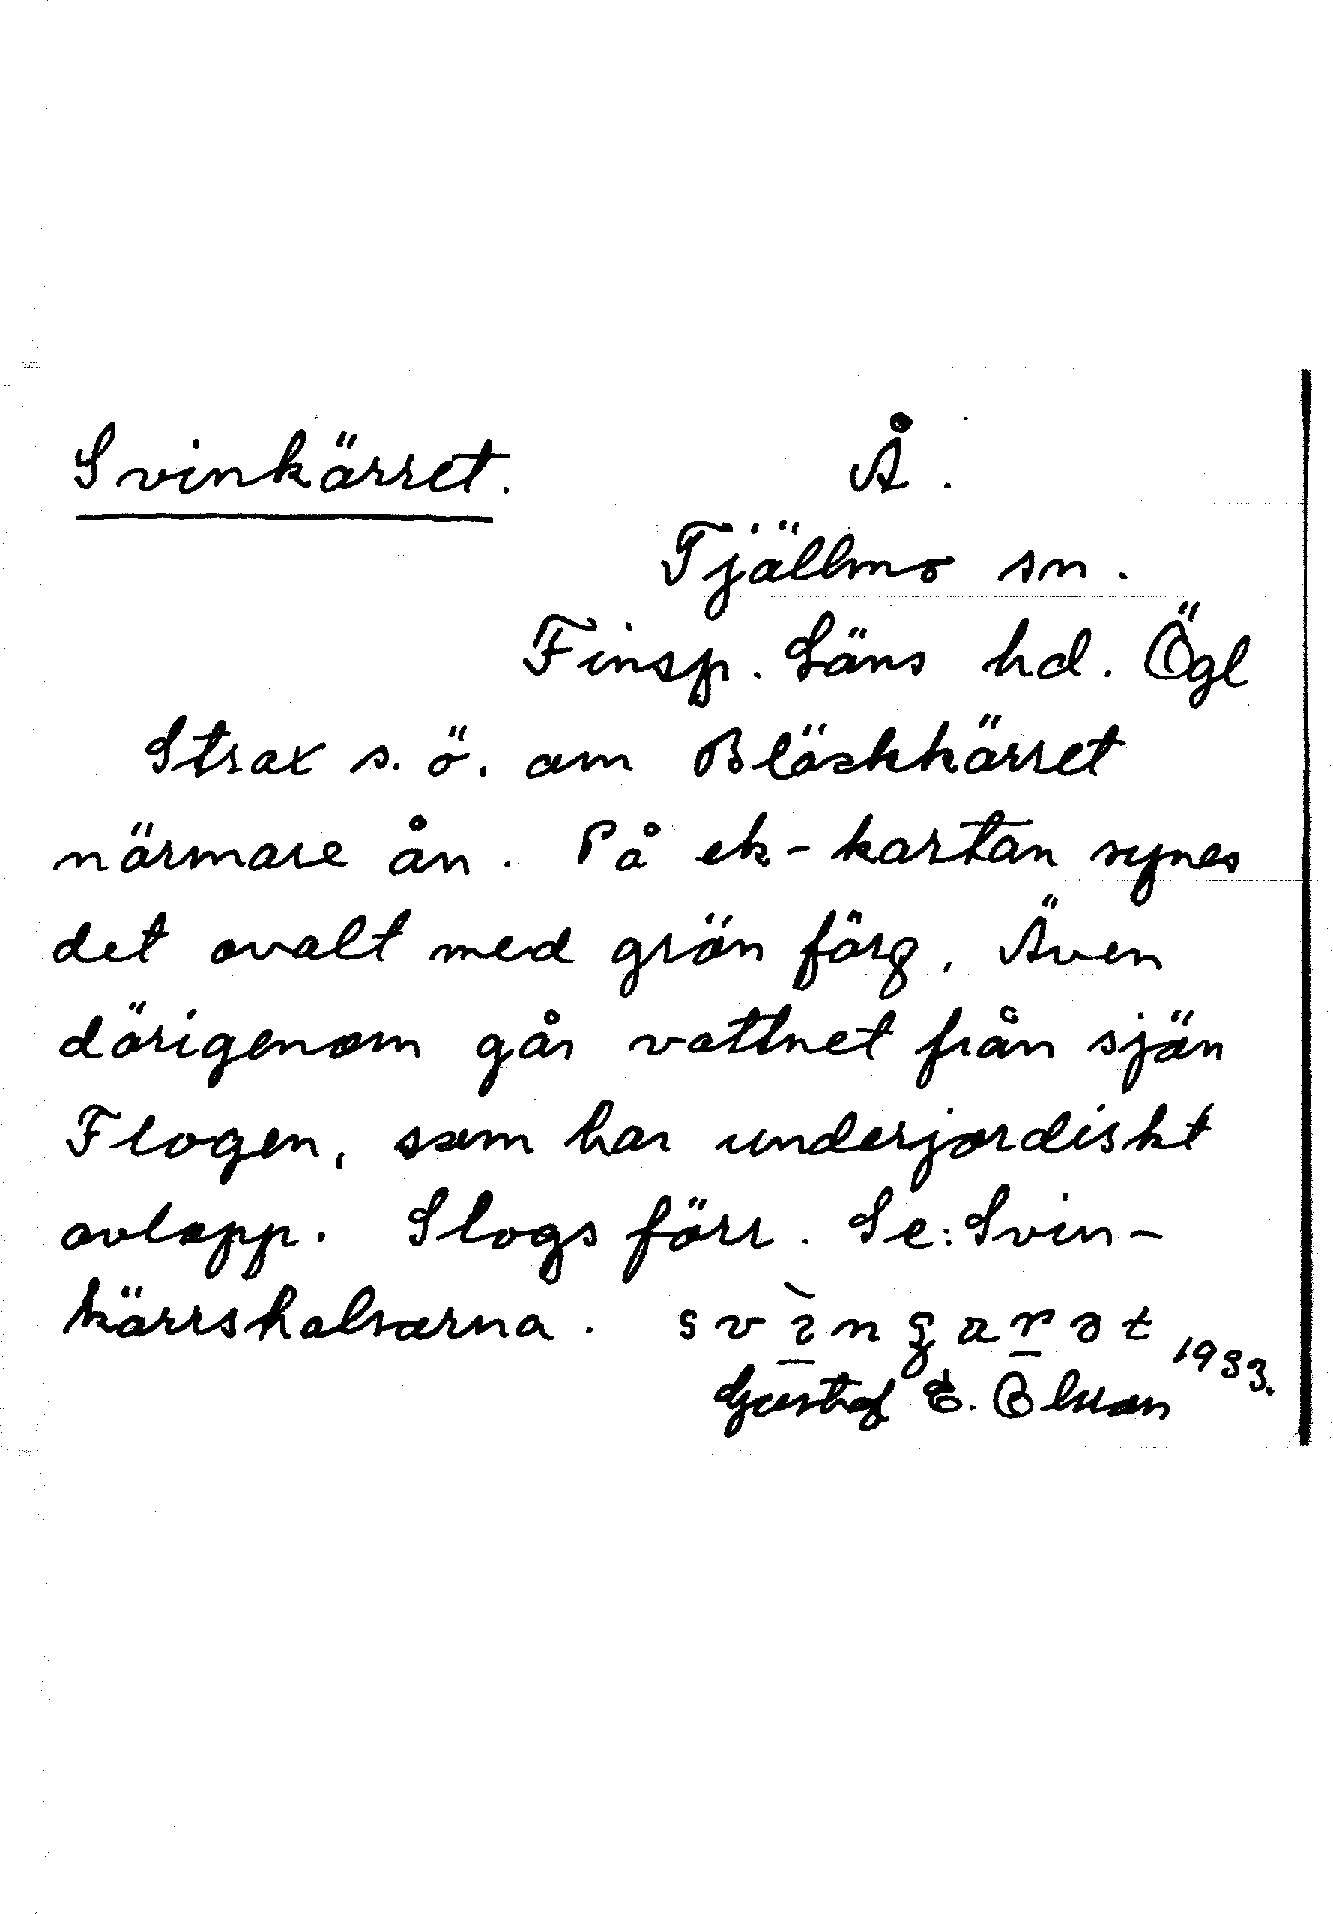 Svinkärret. Å.
Tjällmo sn.
Finsp. Läns hd. Ögl
Strax s.ö. om Bläskkärret
närmare ån. På ek-kartan synes
det ovalt med grön färg. Även
därigenom går vattnet från sjön
Flogen, som har underjordiskt
avlopp. Slogs förr. Se: Svin-
kärrshalvorna. svingarət 1933.
Gustaf E.